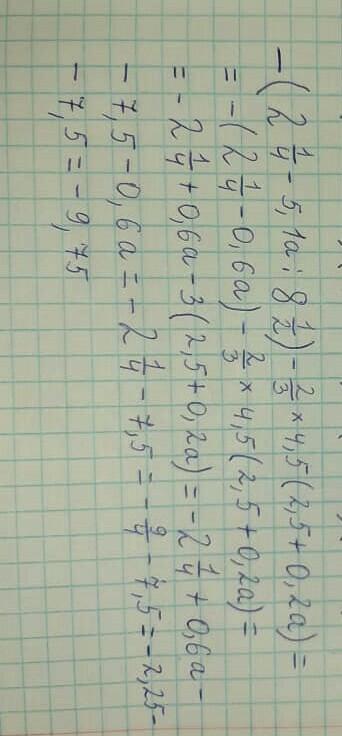 -(2 1/4 - 5,1a : 8 1/2) - 2/3 × 4,5(2,5 + 0,2a) =
= -(2 1/4 - 0,6a) - 2/3 × 4,5(2,5 + 0,2a) =
= -2 1/4 + 0,6a - 3(2,5 + 0,2a) = -2 1/4 + 0,6a -
- 7,5 - 0,6a = -2 1/4 - 7,5 = -9/4 - 7,5 = -2,25 -
- 7,5 = -9,75